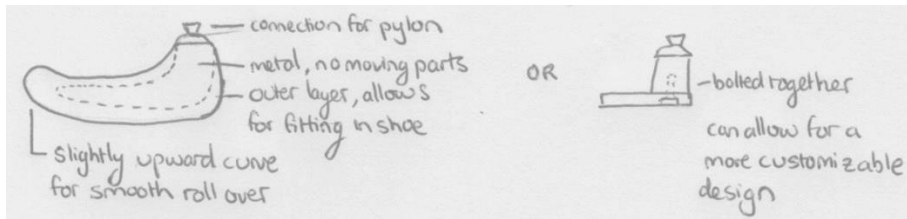 connection for pylon
metal, no moving parts
outer layer, allows
for fitting in shoe
slightly upward curve
for smooth roll over
OR
bolted together
can allow for a
more customizable
design